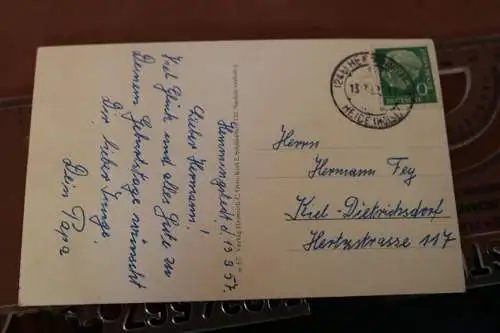 Hemmingstedt, d. 13.9.57.
Lieber Hermann!
Viel Glück und alles Gute zu
Deinem Geburtstage wünscht
Dir lieber Junge
Dein Papa
Herrn
Hermann Fey
Kiel-Dietrichsdorf
Hertzstrasse 117
HEIDE (HOLST)